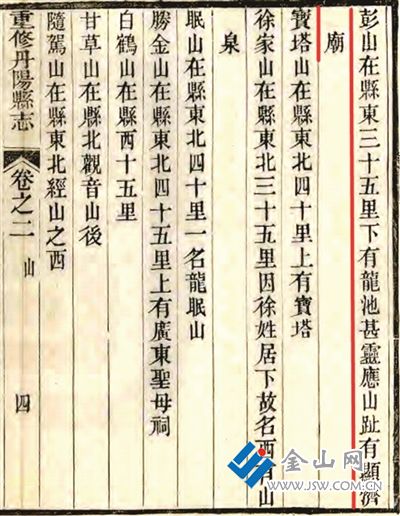 彭山在縣東三十五里下有龍池甚靈應山趾有顯濟
廟
寶塔山在縣東北四十里上有寶塔
徐家山在縣東北三十五里因徐姓居下故名西有山
泉
眠山在縣東北四十里一名龍眠山
勝金山在縣東北四十五里上有廣東聖母祠
白鶴山在縣西十五里
甘草山在縣北觀音山後
隨駕山在縣東北經山之西
重修丹陽縣志
卷之二
山
四
金山网
www.JSW.com.cn